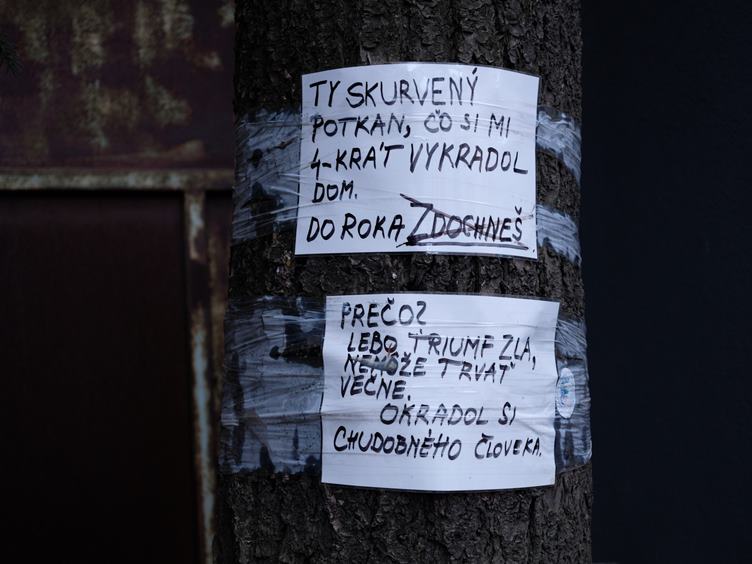 TY SKURVENÝ
POTKAN, ČO SI MI
4-KRÁT VYKRADOL
DOM.
DO ROKA ZDOCHNEŠ
PREČO?
LEBO TRIUMF ZLA,
NEMÔŽE TRVAŤ
VEČNE.
OKRADOL SI
CHUDOBNÉHO ČLOVEKA.